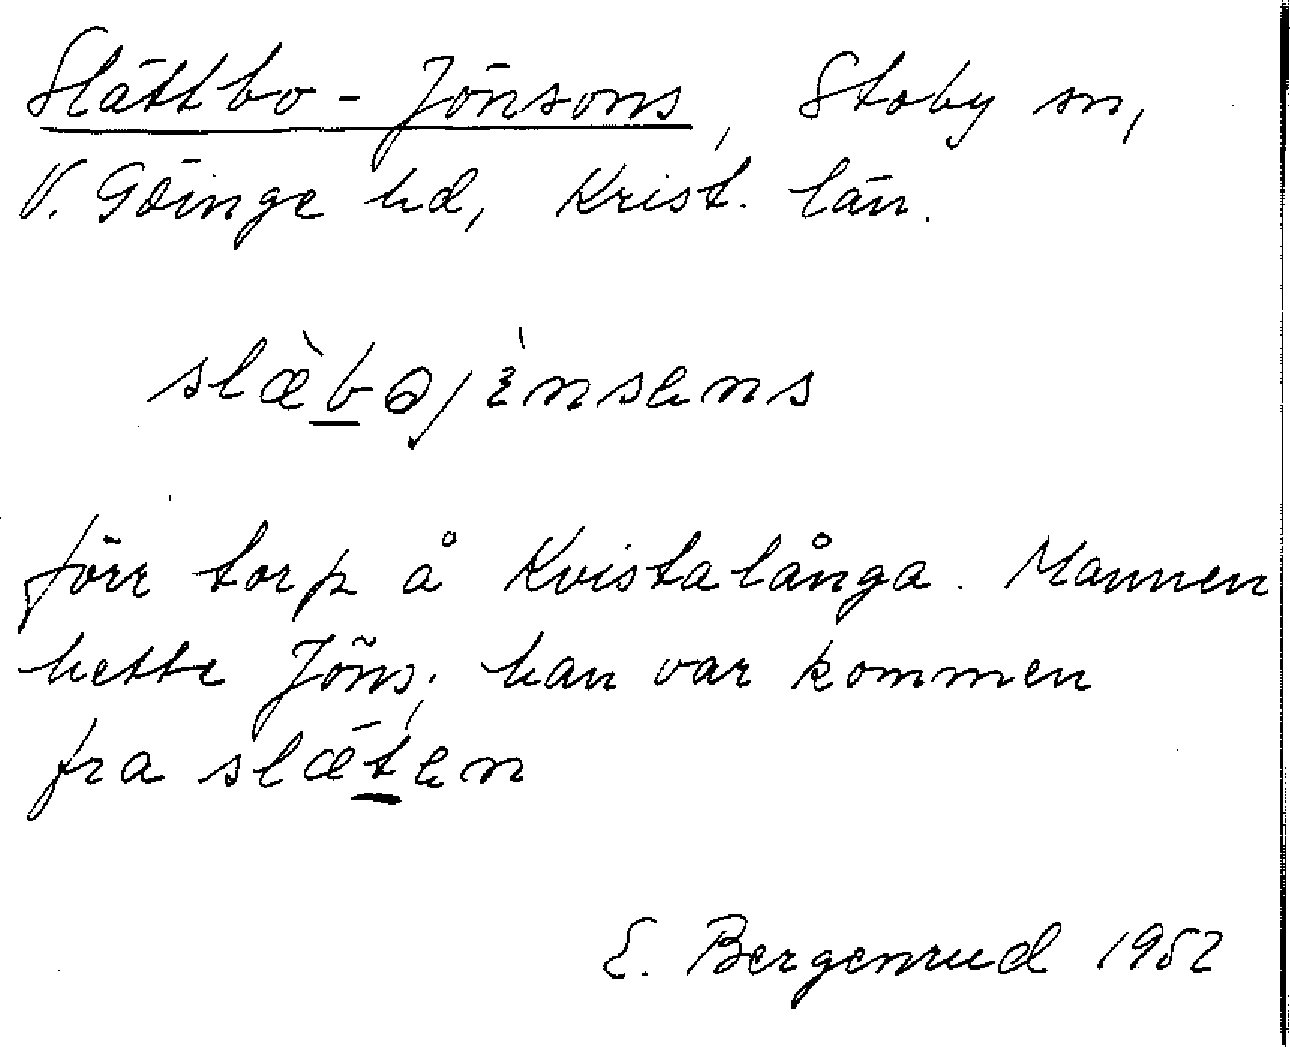 Slättbo-Jönsons, Stoby sn,
V. Göinge hd, Krist. län.
förr torp å Kvistalånga. Mannen
hette Jöns; han var kommen
fra slæ̀ten
E. Bergenrud 1952